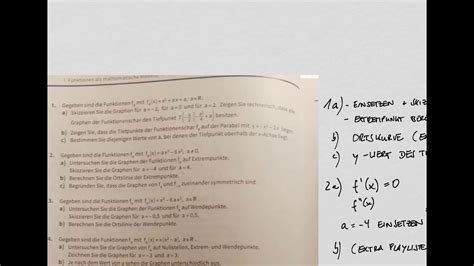 1 Funktionen als mathematische Modelle
1. Gegeben sind die Funktionen fₐ mit fₐ(x) = x² + ax + a, a∈ℝ.
a) Skizzieren Sie die Graphen für a = −2, für a = 0 und für a = 2. Zeigen Sie rechnerisch, dass alle
Graphen der Funktionen den Tiefpunkt T(−a/2 | −a²/4 + a) besitzen.
b) Zeigen Sie, dass die Tiefpunkte der Funktionenschar fₐ auf der Parabel mit y = −x² − 2x liegen.
c) Bestimmen Sie diejenigen Werte von a, bei denen der Tiefpunkt oberhalb der x-Achse liegt.
2. Gegeben sind die Funktionen fₐ mit
a) Untersuchen Sie die Graphen der Funktionen fₐ auf Extrempunkte.
Skizzieren Sie die Graphen für
b) Berechnen Sie die Ortslinie der Extrempunkte.
c) Begründen Sie, dass die Graphen von fₐ und f₋ₐ zueinander symmetrisch sind.
3. Gegeben sind die Funktionen fₐ mit
a) Untersuchen Sie die Graphen der Funktionen fₐ auf Extrem- und Wendepunkte.
Skizzieren Sie die Graphen für a = −0,5 und für a = 0,5.
b) Berechnen Sie die Ortslinie der Wendepunkte.
4. Gegeben sind die Funktionen fₐ mit
a) Untersuchen Sie die Graphen von fₐ auf Nullstellen, Extrem- und Wendepunkte.
Zeichnen Sie die Graphen für a = −3 und a = 3.
b) Je nach dem Wert von a sehen die Graphen unterschiedlich aus.
1a) - EINSETZEN + SKIZ
- EXTREMPUNKT BER
b) ORTSKURVE (E
c) y-WERT DES T
2a) f'(x) = 0
f''(x)
a = -4 EINSETZEN
b) (EXTRA PLAYLISTE